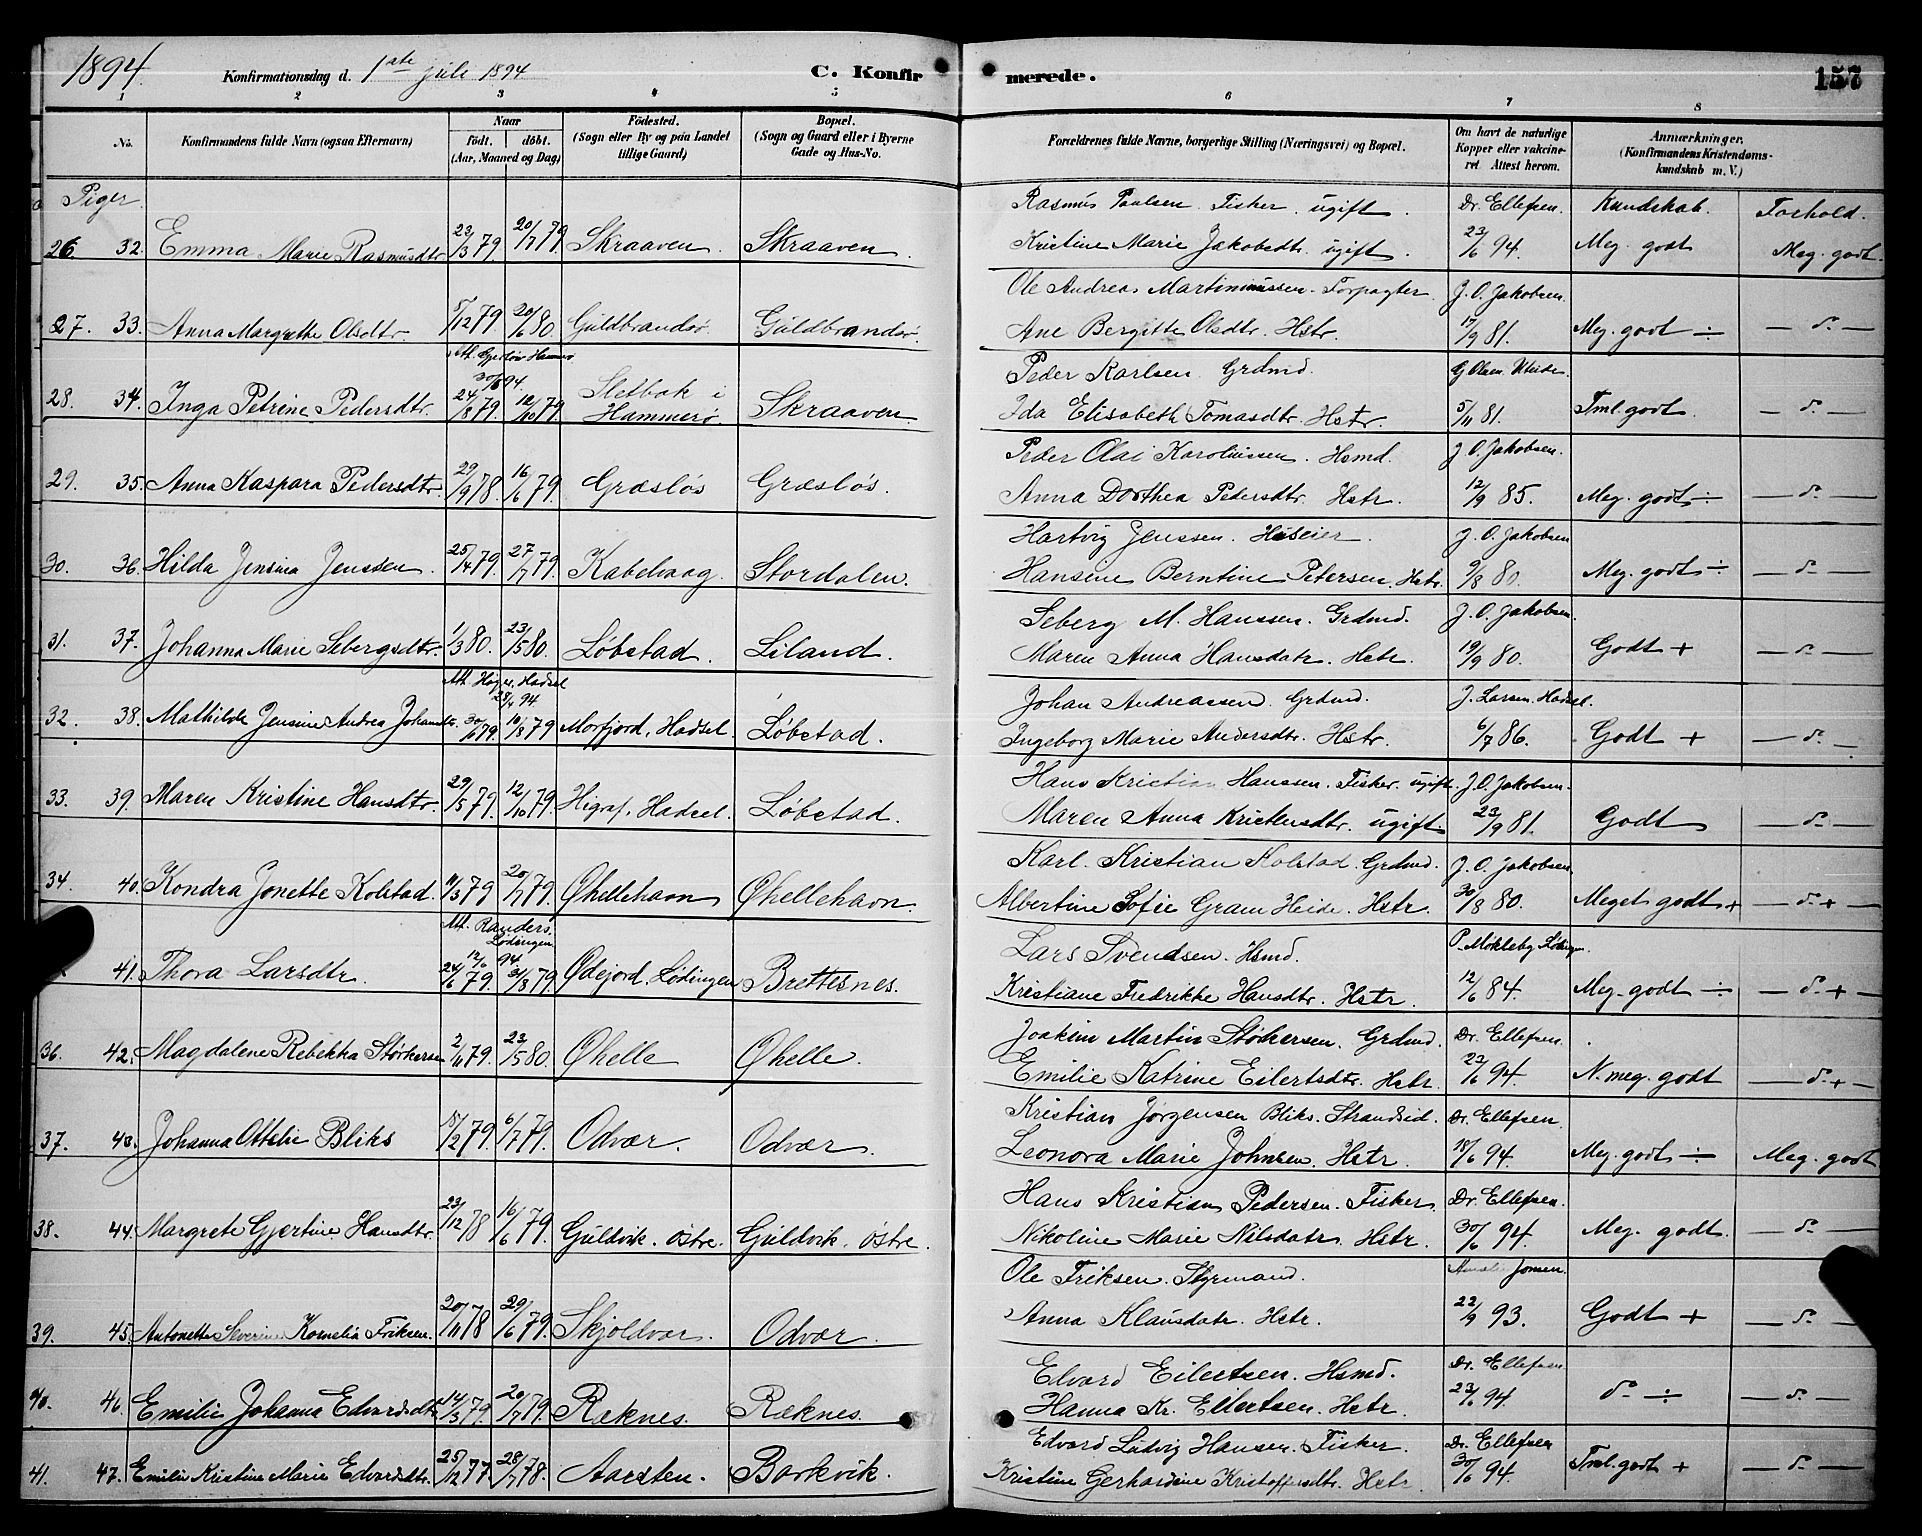 1894. Konfirmationsdag d. 1ste juli 1894 C. Konfirmerede. 157
1 2 3 4 5 6 7 8
No. Konfirmandens fulde Navn (ogsaa Efternavn) Naar født. døbt. (Aar, Maaned og Dag) Fødested. (Sogn eller By og paa Landet tillige Gaard) Bopæl. (Sogn og Gaard eller i Byerne Gade og Hus-No. Forældrenes fulde Navne, borgerlige Stilling (Næringsvei) og Bopæl. Om havt de naturlige Kopper eller vakcineret. Attest herom. Anmærkninger. (Konfirmandens Kristendomskundskab m. V.)
Piger. Rasmus Paulsen Fisker. ugift. Dr. Ellefsen. Kundskab. Forhold.
26 32. Emma Marie Rasmusdtr 23/3 79. 20/7 79 Skraaven. Skraaven. Kristine Marie Jakobsdtr. ugift. 23/6 94. Meg. godt Meg. godt.
Ole Andreas Martinussen. Forpagter. J. O. Jakobsen.
27. 33. Anna Margrethe Olsdtr. 5/12 79. 20/6 80 Guldbrandsø. Guldbrandsø. Ane Bergitte Olsdtr. Hstr. 17/9 81. Meg. godt ÷ — d- —
Att. Hammerø 30/6 94. Peder Karlsen. Grdmd. G Olsen
28. 34. Inga Petrine Pedersdtr. 24/8 79. 12/10 79. Sletbak i Hammerø. Skraaven. Ida Elisabeth Tomasdtr. Hstr. 5/11 81. Tml. godt. — d- —
Peder Olai Karoliussen. Hsmd. J. O. Jakobsen.
29. 35. Anna Kaspara Pedersdtr. 29/9 78. 16/6 79. Græsløs Græsløs. Anna Dorthea Pedersdtr. Hstr. 12/9 85. Meg. godt ÷ — d- —
Hartvig Jenssen. Huseier. J. O. Jakobsen
30. 36. Hilda Jensina Jenssen. 25/4 79. 27/7 79. Kabelvaag. Stordalen. Hansine Berntine Petersen. Hstr. 9/8 80. Meg. godt ÷ — d- —
Seberg M. Hanssen. Grdmd. J. O. Jakobsen.
31. 37. Johanna Marie Sebergsdtr. 1/3 80. 23/5 80. Løbstad. Liland. Maren Anna Hansdatr. Hstr. 19/9 80. Godt + — d- —
Att. Hadsel 28/6 94 Johan Andreassen. Grdmd. J. Larsen Hadsel.
32. 38. Mathilde Jensine Andrea Johansdtr. 30/6 79. 10/8 79 Morfjord, Hadsel. Løbstad. Ingeborg Marie Andersdtr. Hstr. 6/7 86. Godt + — d- —
Hans Kristian Hanssen. Fisker. ugift. J. O. Jakobsen.
33. 39. Maren Kristine Hansdtr. 29/5 79. 12/10 79. Higraf. Hadsel. Løbstad. Maren Anna Kristensdtr. ugift. 23/9 81. Godt — d- —
Karl Kristian Kolstad. Grdmd. J. O. Jakobsen
34. 40. Kondra Jonette Kolstad. 11/3 79 20/7 79. Øhellehavn Øhellehavn. Albertine Sofie Gram Heide. Hstr. 30/8 80. Meget godt + — d- + —
Att. Randers. Lødingen 12/6 94. Lars Svendsen. Hsmd. P. Mokleby Lødingen
41. Thora Larsdtr. 24/6 79. 31/8 79. Ødejord. Lødingen Brettesnes. Kristiane Fredrikke Hansdtr. Hstr. 12/6 84. Meg. godt ÷ — d- + —
Joakim Martin Størkersen. Grdmd. Dr. Ellefsen.
36. 42. Magdalene Rebekka Størkersen 2/11 79. 23/5 80. Øhelle Øhelle. Emilie Katrine Eilertsdtr. Hstr. 23/6 94. N. meg. godt — d- + —
Kristian Jørgensen Bliks. Strandsid. Dr. Ellefsen.
37. 43. Johanna Ottelie Bliks 15/2 79. 6/7 79. Odvær. Odvær. Leonora Marie Johnsen. Hstr. 18/6 94. Meg. godt ÷ Meg. godt
Hans Kristian Pedersen. Fisker. Dr. Ellefsen.
38. 44. Margrete Gjertine Hansdtr. 23/12 78 16/6 79. Guldvik. østre. Guldvik. østre. Nikoline Marie Nilsdatr. Hstr. 30/6 94. Meg. godt. — d- —
Ole Friksen. Styrmand. Jonsen.
39. 45. Antonette Severine Kornelia Friksen. 20/11 78 29/6 79. Skjoldvær. Odvær. Anna Klausdatr. Hstr. 22/9 93. Godt + — d- —
Edvard Eilertsen. Hsmd. Dr. Ellefsen
40. 46. Emilie Johanna Edvardsdtr 14/3 79. 20/7 79. Ræknes. Ræknes. Hanna Kr. Eilertsen. Hstr. 23/6 94. d- ÷ — d- —
Edvard Ludvig Hansen. Fisker. Dr. Ellefsen
41. 47. Emilie Kristine Marie Edvardsdtr. 25/12 77. 28/7 78. Aarsten. Borkvik. Kristine Gerhardine Kristoffersdtr. Hstr. 30/6 94. Tml. godt + — d- —